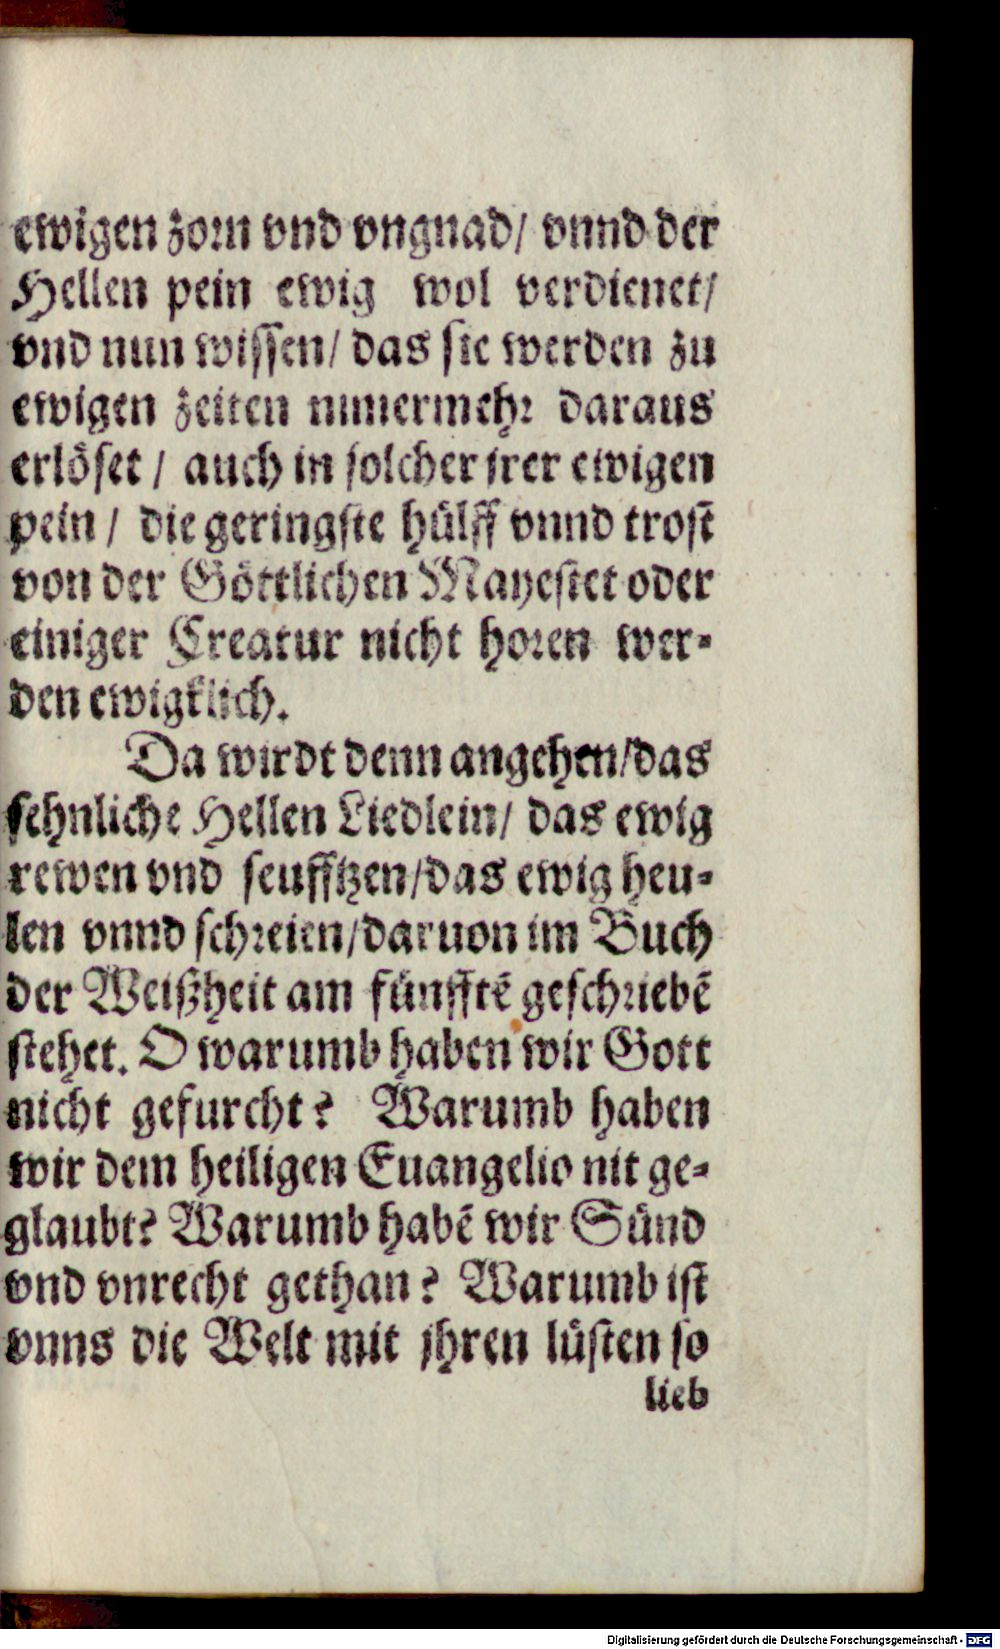 ewigen zorn vnd vngnad/ vnnd der
Hellen pein ewig wol verdienet/
vnd nun wissen/ das sie werden zu
ewigen zeiten nimermehr daraus
erlöset / auch in solcher jrer ewigen
pein / die geringste hülff vnnd trost
von der Göttlichen Mayestet oder
einiger Creatur nicht horen wer-
den ewigklich.
Da wirdt denn angehen/das
sehnliche Hellen Liedlein/ das ewig
rewen vnd seufftzen/das ewig heu-
len vnnd schreien/daruon im Buch
der Weißheit am fünfftē geschriebē
stehet. O warumb haben wir Gott
nicht gefurcht? Warumb haben
wir dem heiligen Euangelio nit ge-
glaubt? Warumb habē wir Sünd
vnd vnrecht gethan? Warumb ist
vnns die Welt mit jhren lüsten so
lieb
Digitalisierung gefördert durch die Deutsche Forschungsgemeinschaft - DFG